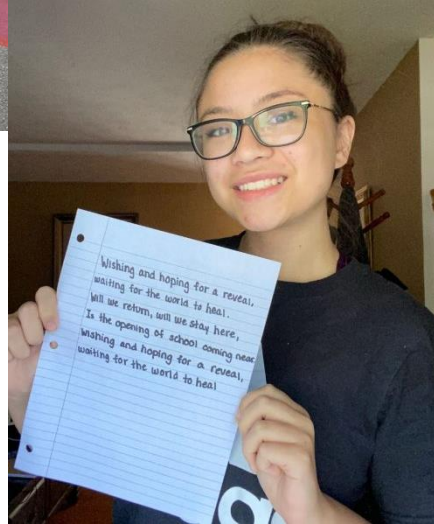 Wishing and hoping for a reveal,
waiting for the world to heal.
Will we return, will we stay here,
Is the opening of school coming near
wishing and hoping for a reveal,
waiting for the world to heal